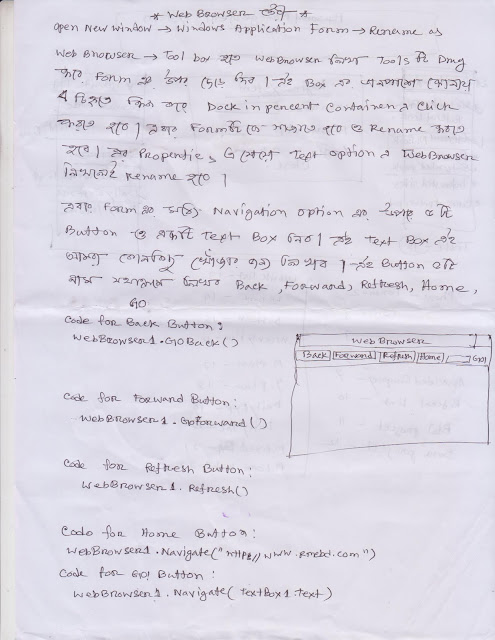 * Web Browser তৈরী *
Open New Window → Windows Application Form → Rename as
Web Browser → Tool box হতে WebBrowser লিখা Tools টি Drug
করে Form এর উপর ছেড়ে দিব। এই Box এর
চিহ্নতে ক্লিক করে Dock in perent Container এ Click
করতে হবে। এবার Form টিকে সাজাতে হবে ও Rename করতে
হবে। এর Properties এ যেয়ে Text option এ WebBrowser
লিখলেই Rename হবে।
এবার Form এর Navigation option এর উপরে ৫ টি
Button ও একটি Text Box নিব। এই Text Box এই
আমরা জন্য লিখব। এই Button ৫টি
নাম যথাক্রমে লিখব Back, Forward, Refresh, Home,
GO.
Code for Back Button:
WebBrowser1.GoBack()
Web Browser
Back Forward Refresh Home GO!
Code for Forward Button:
WebBrowser1.GoForward()
Code for Refresh Button:
WebBrowser1.Refresh()
Code for Home Button:
WebBrowser1.Navigate("http//www.rmebd.com")
Code for GO! Button:
WebBrowser1.Navigate(TextBox1.text)